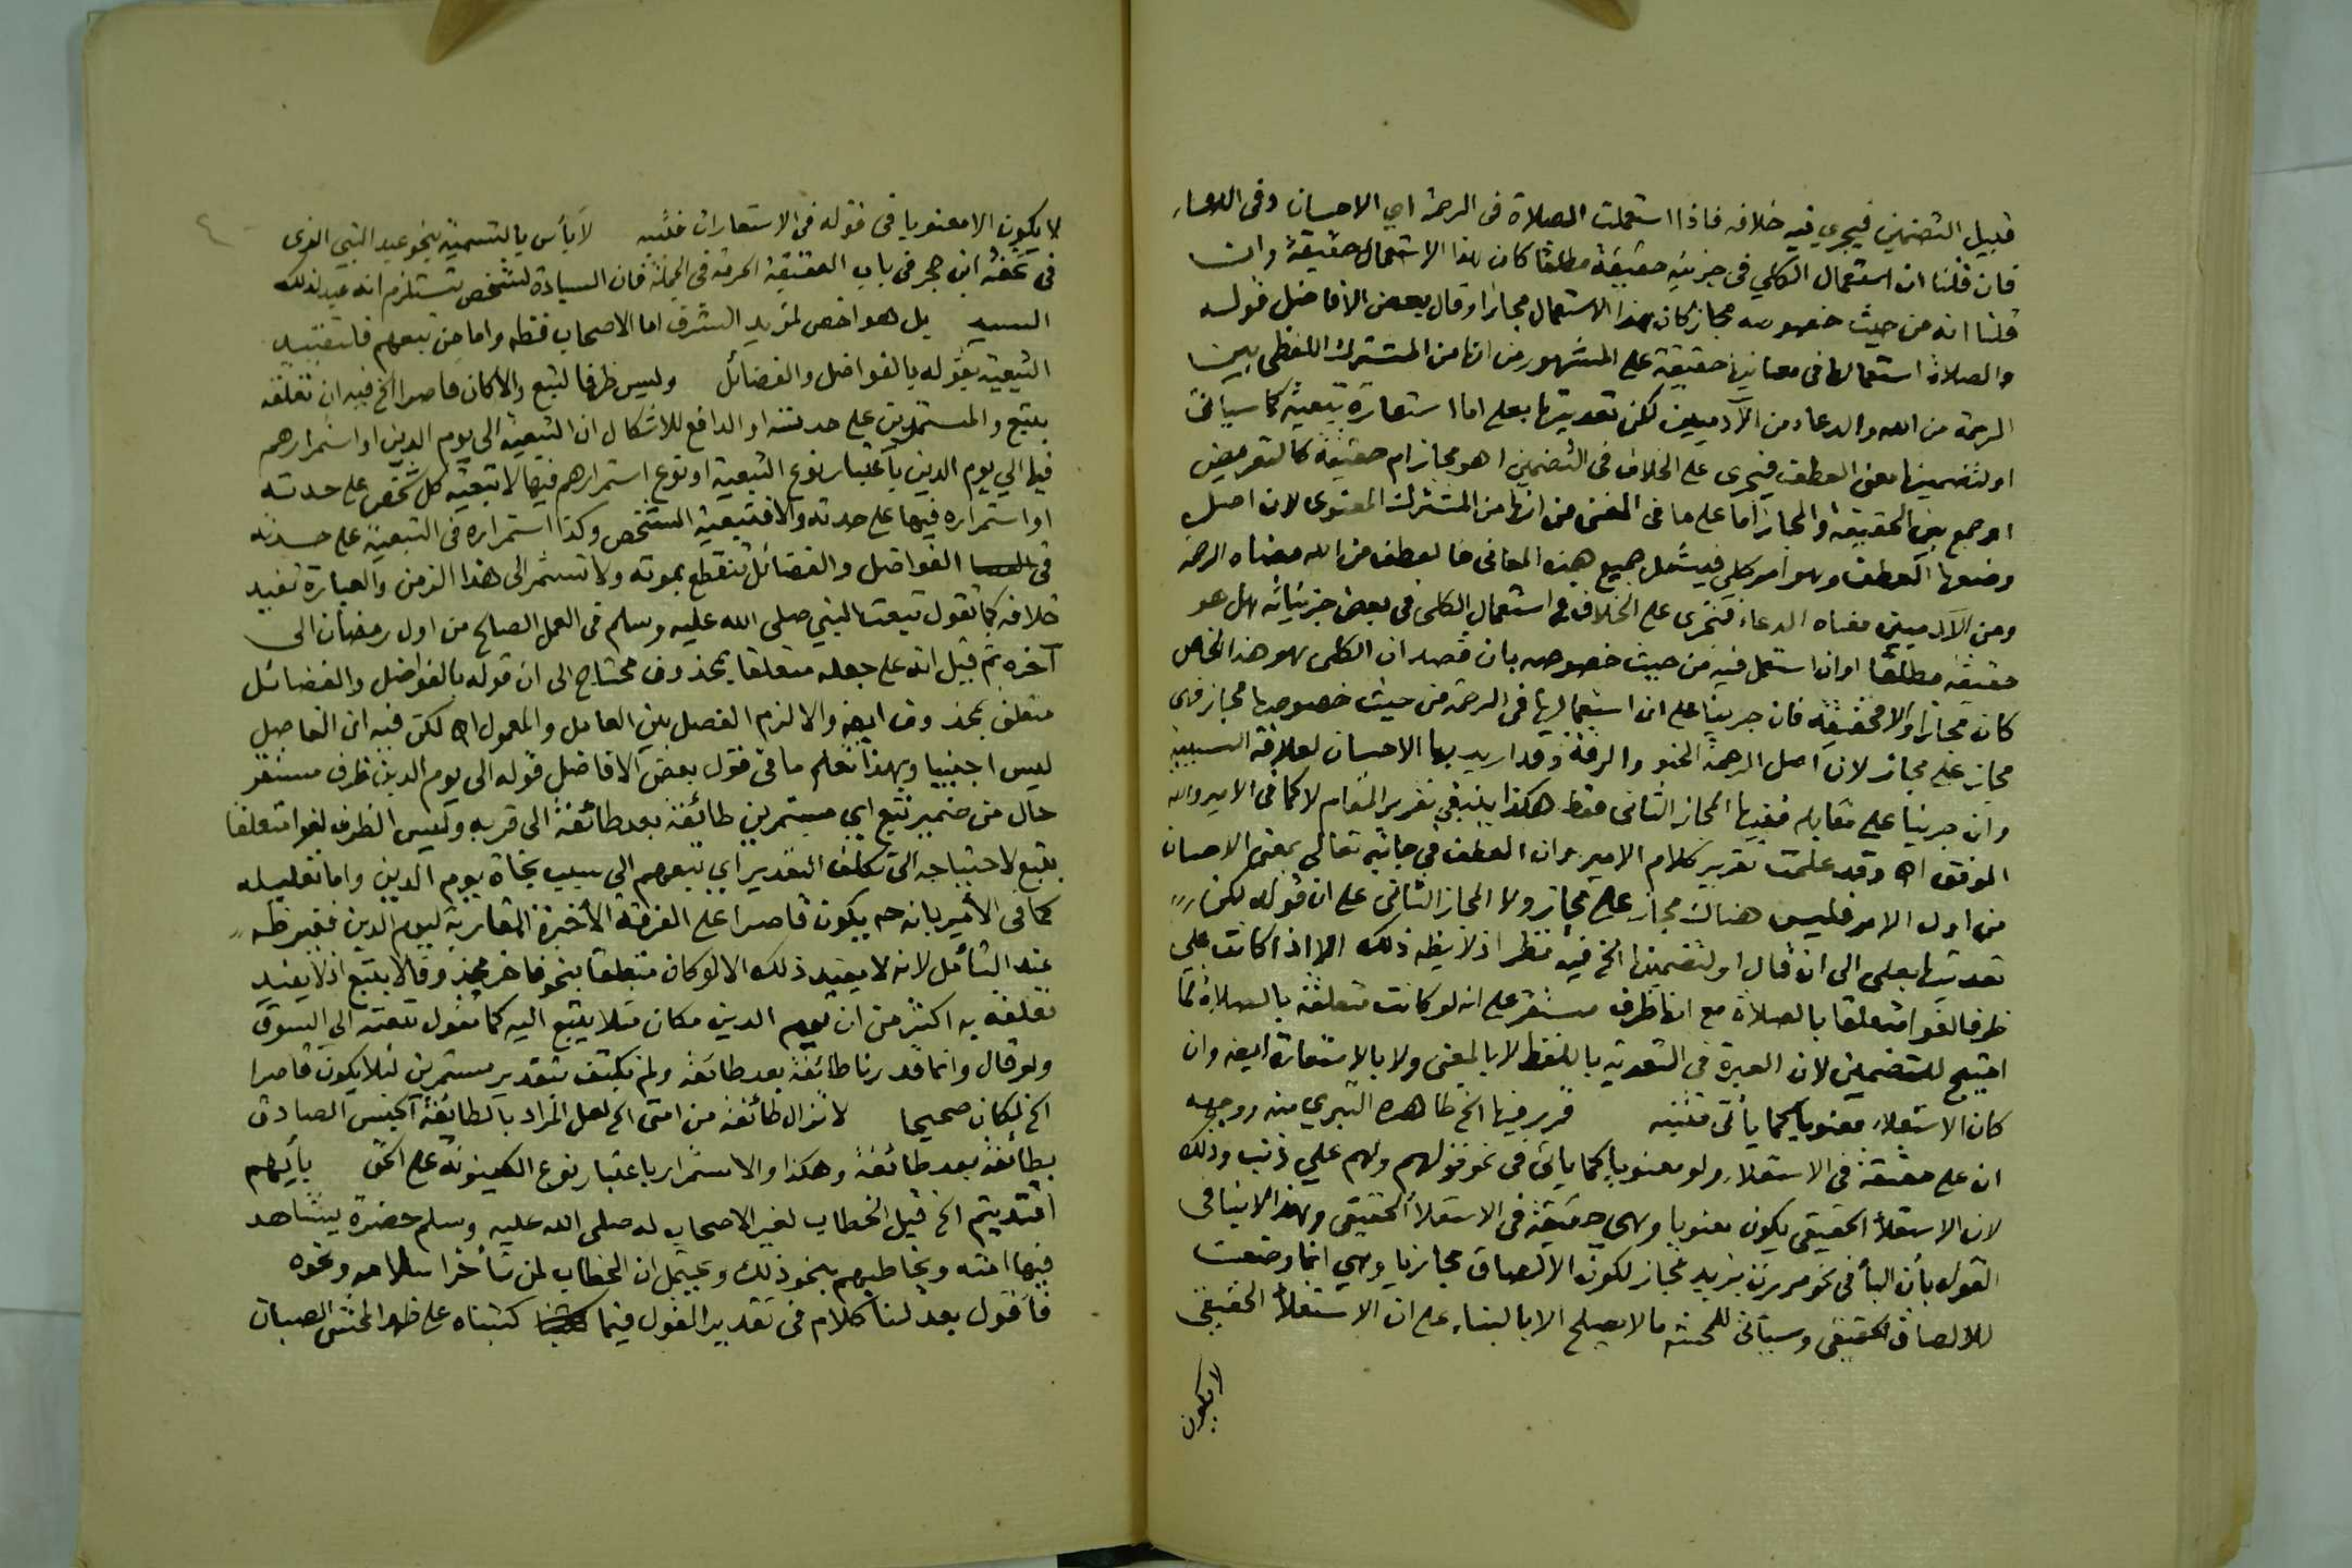 قبيل التضمين فيجري فيه خلافه فاذا استعملت الصلاة فى الرحمة اي الاحسان وفى الدعاء
فان قلنا ان استعمال الكلي فى جزئيه حقيقة مطلقا كان هذا الاستعمال حقيقة وان
قلنا انه من حيث خصوصه مجاز كان هذا الاستعمال مجازا وقال بعض الافاضل قوله
والصلاة استعمالها فى معانيها حقيقة على المشهور من انها من المشترك اللفظى بين
الرحمة من الله والدعاء من الآدميين لكن تعديتها بعلى اما استعارة تبعية كما سيأتى
او لتضمينها معنى العطف فيجرى على الخلاف فى التضمين اهو مجاز ام حقيقة كالتعريض
او جمع بين الحقيقة والمجاز اما على ما فى المغنى من انها من المشترك المعنوى لان اصل
وضعها العطف وهو امر كلى فيشمل جميع هذه المعانى فالعطف من الله معناه الرحمة
ومن الآدميين معناه الدعاء فتجرى على الخلاف فى استعمال الكلى فى بعض جزئياته هل هو
حقيقة مطلقا او ان استعمل فيه من حيث خصوصه بان قصد ان الكلى هو هذا الخاص
كان مجازا والا فحقيقة فان جرينا على ان استعمالها فى الرحمة من حيث خصوصها مجاز فهى
مجاز على مجاز لان اصل الرحمة الحنو والرقة وقد اريد بها الاحسان لعلاقة السببية
وان جرينا على مقابله ففيها المجاز الثانى فقط هكذا ينبغى تقرير المقام لا كما فى الامير والله
الموفق اه وقد علمت تقرير كلام الامير وان العطف فى جانبه تعالى بمعنى الاحسان
من اول الامر فليس هناك مجاز على مجاز ولا المجاز الثانى على ان قوله لكن
تعديتها بعلى الى ان قال او لتضمينها الخ فيه نظر اذ لا يظهر ذلك الا اذا كانت على
ظرفا لغوا متعلقا بالصلاة مع انها ظرف مستقر على انه لو كانت متعلقة بالصلاة لما
احتيج للتضمين لان العبرة فى التعدية باللفظ لا بالمعنى ولا بالاستعارة ايضا وان
كان الاستعلاء معنويا كما يأتى فتنبه قرير فيها الخ ظاهره التبري منه ووجهه
ان على حقيقة فى الاستعلاء ولو معنويا كما يأتى فى نحو قولهم ولهم علي ذنب وذلك
لان الاستعلاء الحقيقى يكون معنويا وهى حقيقة فى الاستعلاء الحقيقى وهذا لا ينافى
القول بأن البأ فى نحو مررت بزيد مجاز لكون الالصاق مجازيا وهي انما وضعت
للالصاق الحقيقى وسيأتى للمحشى ما لا يصلح الا بالبناء على ان الاستعلاء الحقيقى
لا يكون
لا يكون الا معنويا فى قوله فى الاستعارات فتنبه لا بأس بالتسمية بنحو عبد النبى الذى
فى تحفة ابن حجر فى باب العقيقة الحرمة فى الجملة فان السيادة لشخص تستلزم انه عبد لذلك
السيد بل هو اخص لمزيد الشرف اما الاصحاب فقط واما من تبعهم فلتقييد
التبعية بقوله بالفواضل والفضائل وليس ظرفا لتبع والا كان قاصرا الخ فيه ان تعلقه
بتبع والمستمرين على حد سواء الدافع للاشكال ان التبعية الى يوم الدين او استمرارهم
فيها الي يوم الدين باعتبار نوع التبعية او نوع استمرارهم فيها لا تبعية كل شخص على حدته
او استمراره فيها على حدته والا فتبعية الشخص وكذا استمراره فى التبعية على حدته
فى الفواضل والفضائل تنقطع بموته ولا تستمر الى هذا الزمن والعبارة تفيد
خلافه كما تقول تبعت النبي صلى الله عليه وسلم فى العمل الصالح من اول رمضان الى
آخره ثم قيل انه على جعله متعلقا بمحذوف محتاج الى ان قوله بالفواضل والفضائل
متعلق بمحذوف ايضا والا لزم الفصل بين العامل والمعمول اه لكن فيه ان الفاصل
ليس اجنبيا وبهذا تعلم ما فى قول بعض الافاضل قوله الى يوم الدين ظرف مستقر
حال من ضمير تبع اي مستمرين طائفة بعد طائفة الى قربه وليس الظرف لغوا متعلقا
بتبع لاحتياجه الى تكلف التقدير اي تبعهم الى سبب نجاة يوم الدين واما تعليله
كما فى الأمير بانه ح يكون قاصرا على الفرقة الأخيرة المقاربة ليوم الدين فغير ظه
عند التأمل لانه لا يفيد ذلك الا لو كان متعلقا بنحو فاخر مجذوفا لا بتبع اذ لا يفيد
تعلقه به اكثر من ان يوم الدين مكان مثلا يتبع اليه كما تقول تبعته الى السوق
ولو قال وانما قدرنا طائفة بعد طائفة ولم نكتف بتقدير مستمرين لئلا يكون قاصرا
الخ لكان صحيحا لا تزال طائفة من امتى الخ لعل المراد بالطائفة الجنس الصادق
بطائفة بعد طائفة وهكذا والاستمرار باعتبار نوع الكينونة على الحق بأيهم
اقتديتم الخ قيل الخطاب لغير الاصحاب له صلى الله عليه وسلم حضرة يشاهد
فيها امته ويخاطبهم بنحو ذلك ويحتمل ان الخطاب لمن تأخر اسلامه ونحوه
فأقول بعد لنا كلام فى تقدير القول فيما كتبناه على ظهر المحشى الصبان